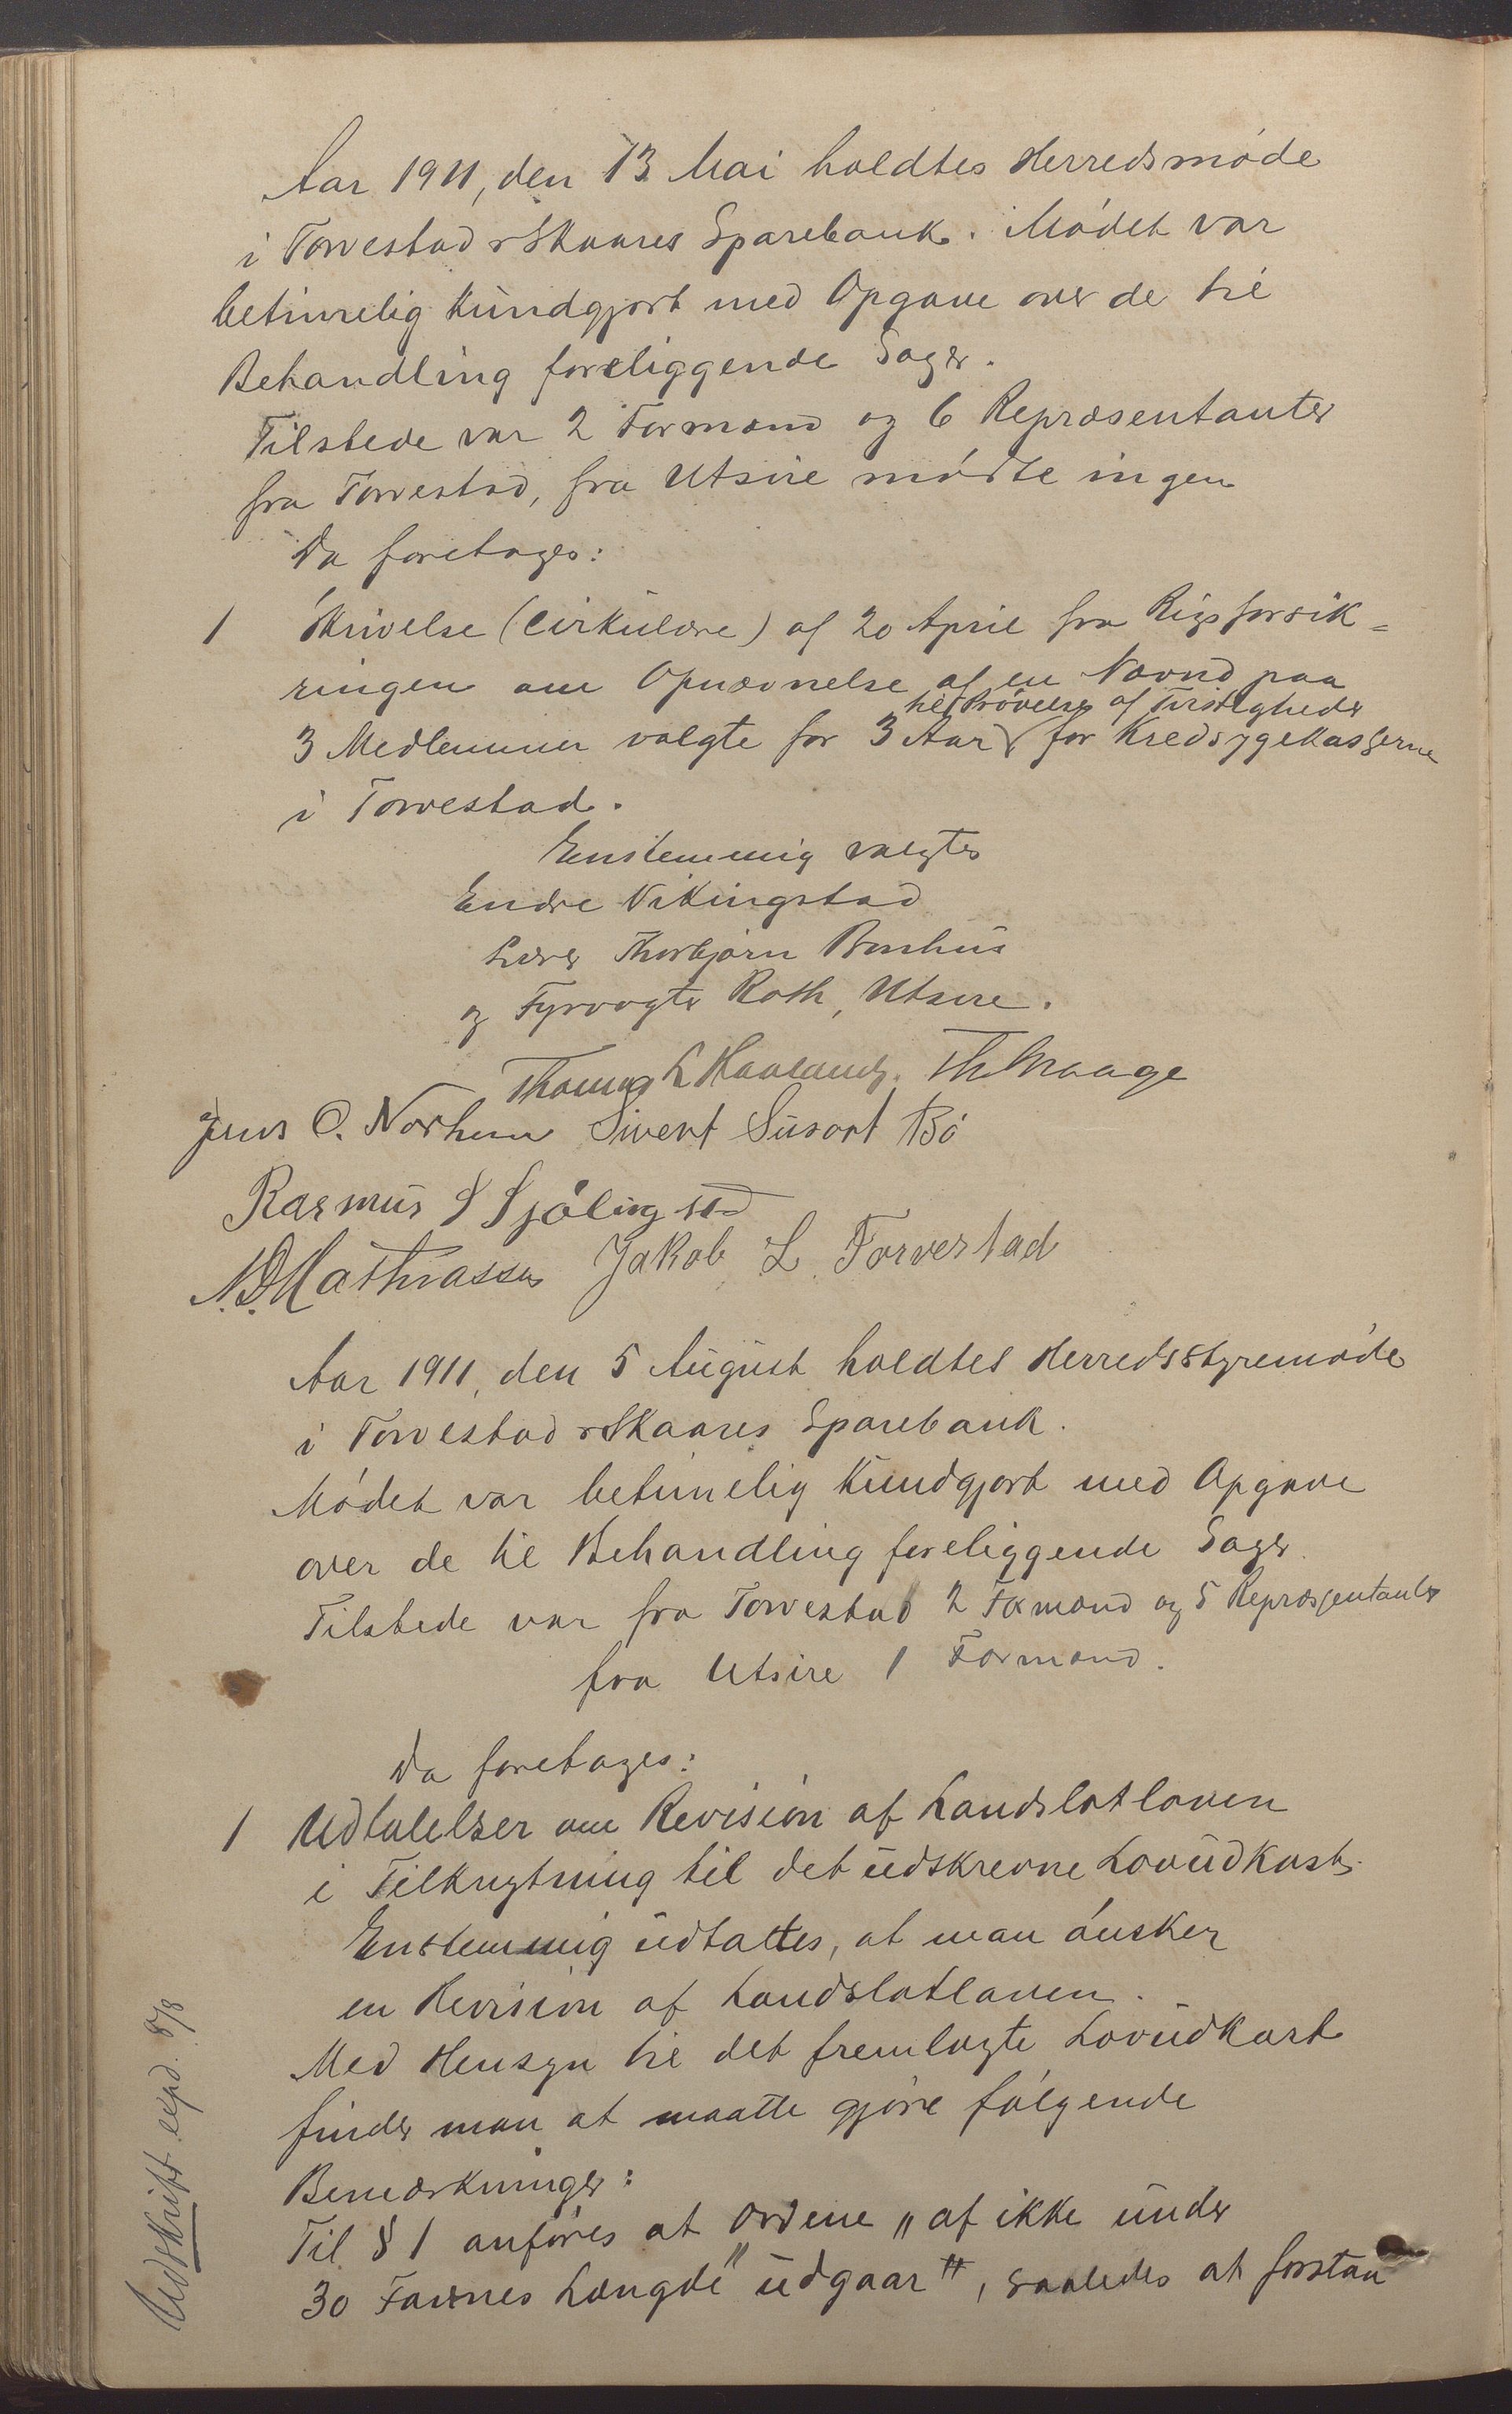 Aar 1911, den 13 Mai holdtes Herredsmøde
i Torvestad & Skaares Sparebank. Mødet var
betimelig kundgjort med Opgave over de til
Behandling foreliggende Sager.
Tilstede var 2 Formænd og 6 Repræsentanter
fra Torvestad, fra Utsire mødte ingen
Da foretages:
1 Skrivelse (Cirkulære) af 20 April fra Rigsforsik=
ringen om Opnævnelse af en Nævnd paa
til Prøvelse af Tvistigheder
3 Medlemmer valgte for 3 Aar for Kredssygekasserne
i Torvestad.
Enstemmig valgtes
Endre Vikingstad
Lærer Thorbjørn Bonhus
og Fyrvogter Roth, Utsire.
Thomas L Haaland. Th Waage
Jens O. Norheim Sivert Susort Bø
Rasmus S Sjølingstad
N.D. Mathiassen Jakob L. Torvestad
Aar 1911, den 5 August holdtes Herredsstyremøde
i Torvestad & Skaares Sparebank.
Mødet var betimelig kundgjort med Opgave
over de til Behandling foreliggende Sager
Tilstede var fra Torvestad 2 Formænd og 5 Repræsentanter
fra Utsire 1 Formand.
Da foretages:
1 Udtalelser om Revision af Landslotloven
i Tilknytning til det udskrevne Lovudkast.
Enstemmig udtaltes, at man ønsker
en Revision af Landslotloven.
Med Hensyn til det fremlagte Lovudkast
finder man at maatte gjøre følgende
Bemærkninger:
Til § 1 anføres at Ordene „af ikke under
30 Favnes Længde" udgaar", saaledes at forstaa
Udskrift exp. 8/8